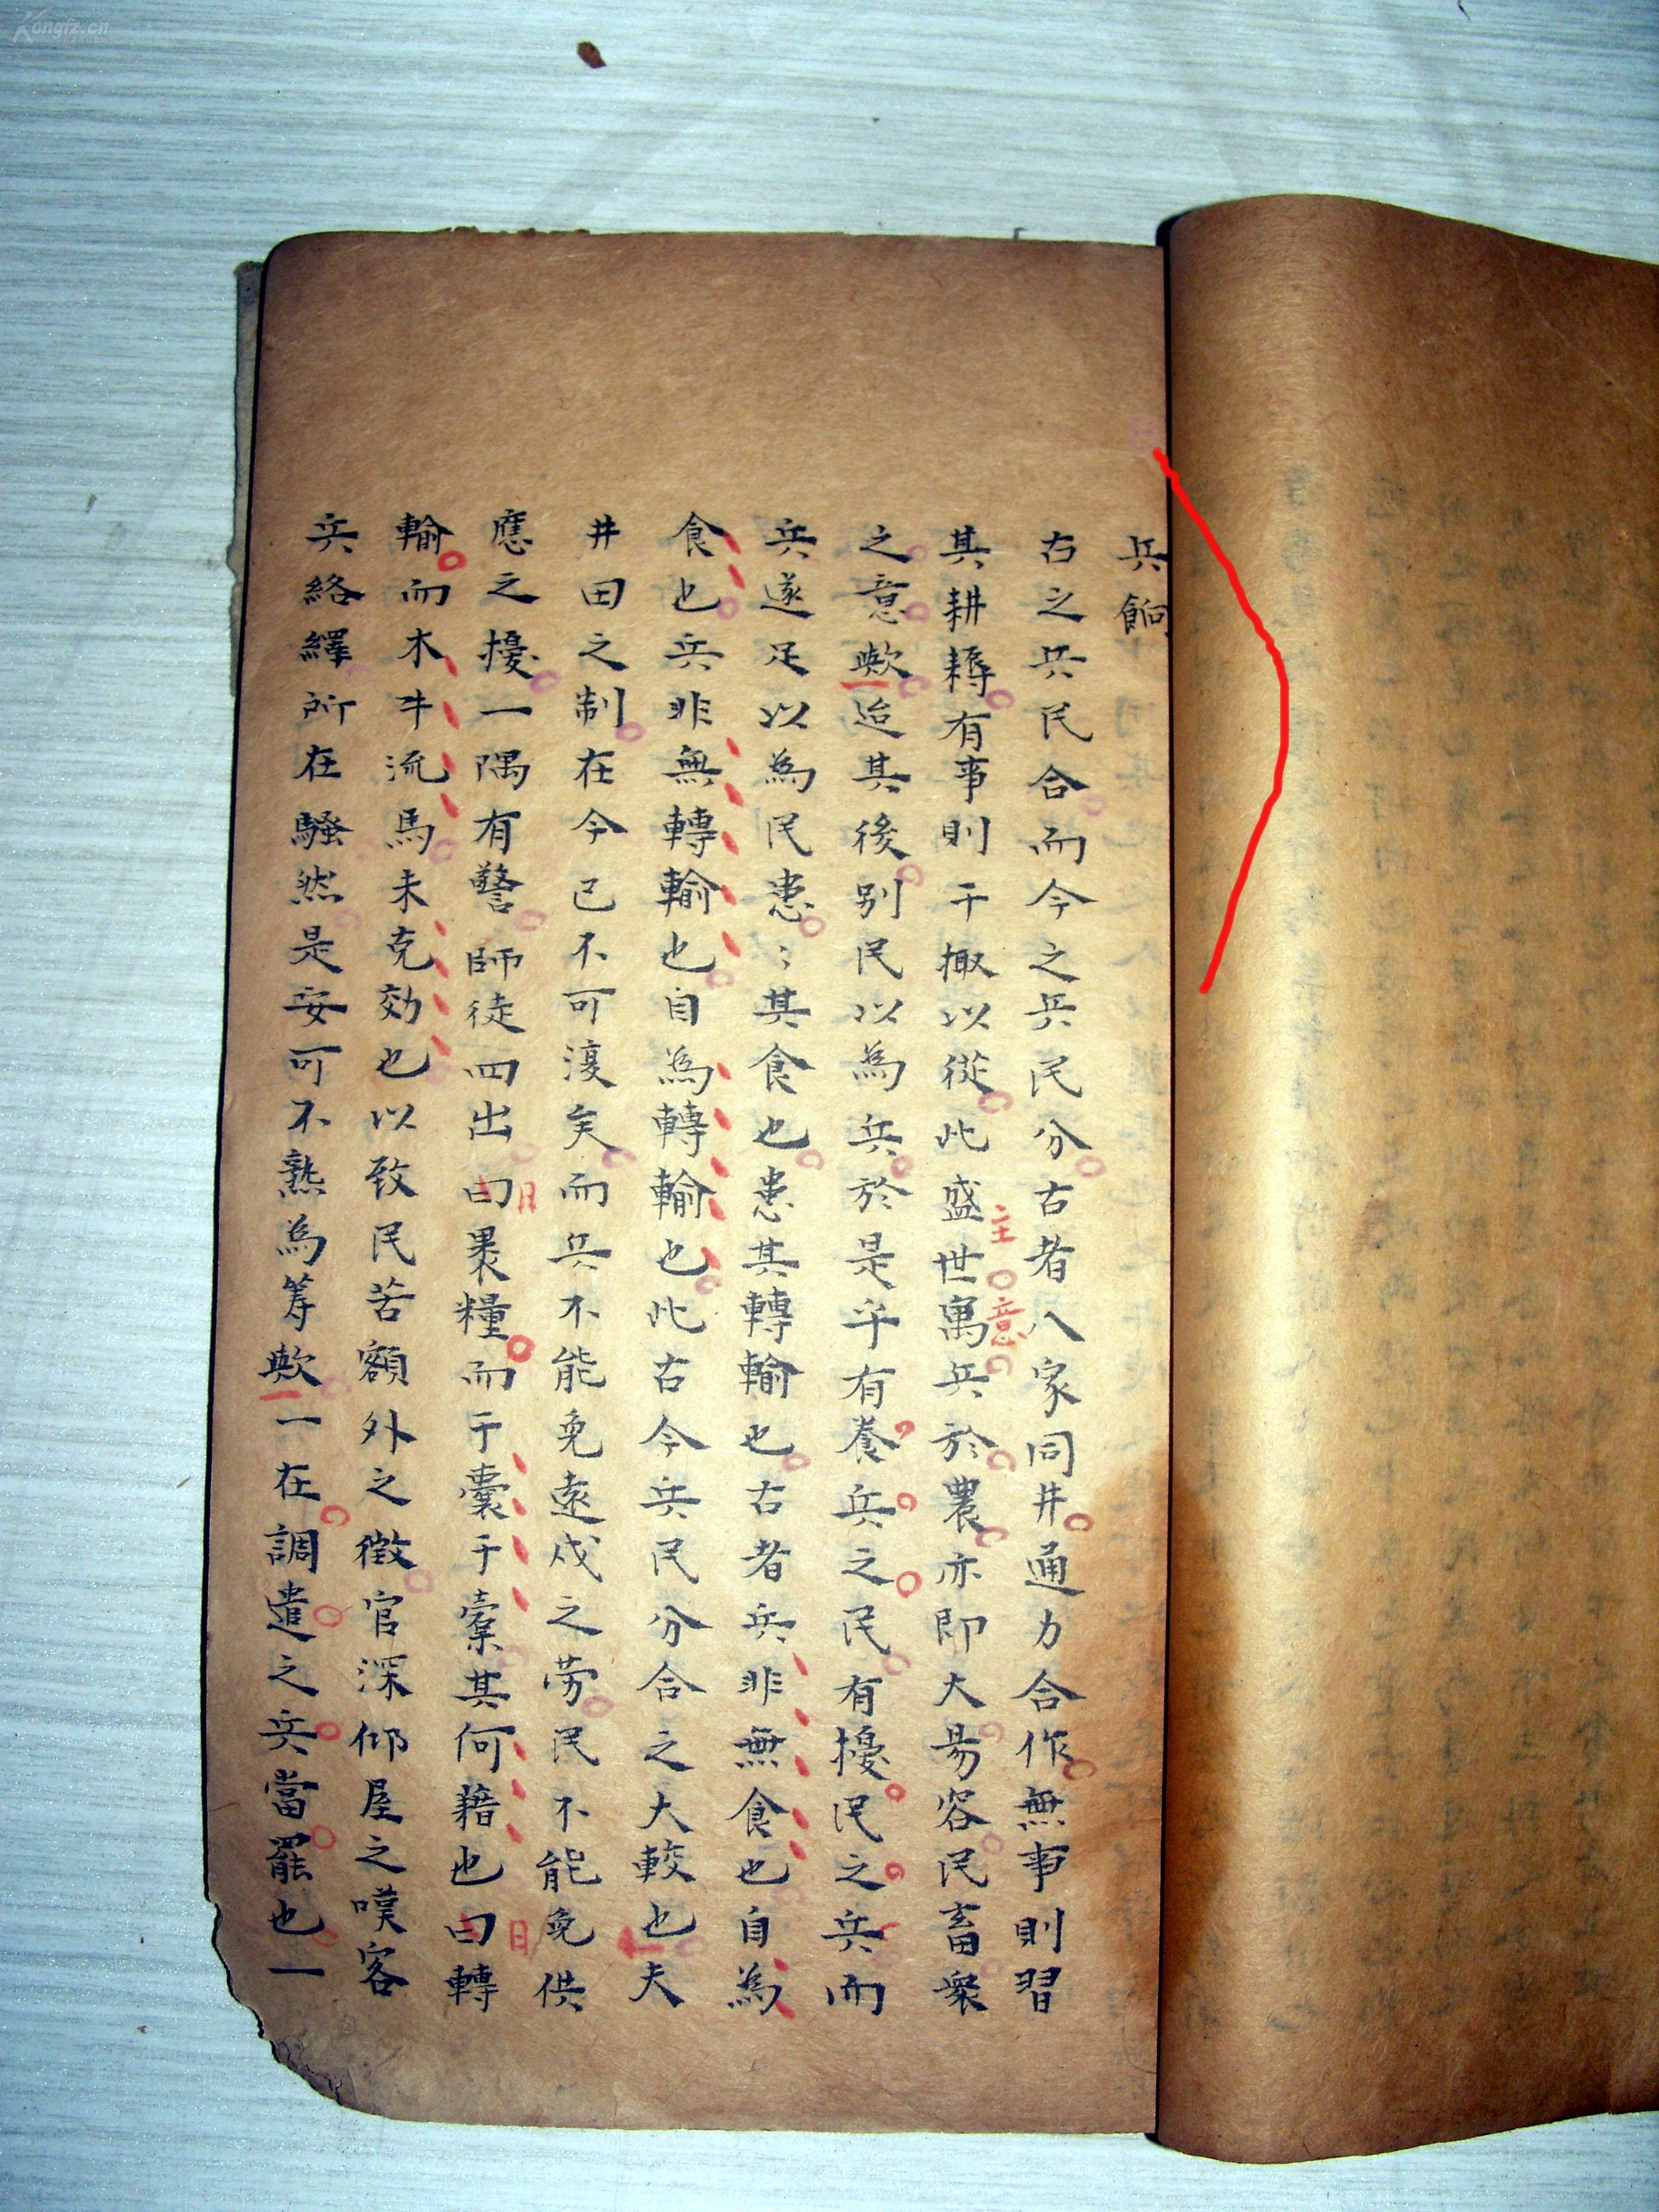 兵餉
古之兵民合而今之兵民分古者八家同井通力合作無事則習
其耕耨有事則干掫以從此盛世寓兵於農亦即大易容民畜衆
主意
之意歟迨其後別民以為兵於是乎有養兵之民有擾民之兵而
兵遂足以為民患〻其食也患其轉輸也古者兵非無食也自為
食也兵非無轉輸也自為轉輸也此古今兵民分合之大較也夫
井田之制在今已不可復矣而兵不能免遠戍之勞民不能免供
應之擾一隅有警師徒四出曰裹糧而于囊于橐其何藉也曰轉
日
日
輸而木牛流馬未克効也以致民苦額外之徵官深仰屋之嘆客
兵絡繹所在騷然是安可不熟為籌歟一在調遣之兵當罷也一
Kongfz.cn